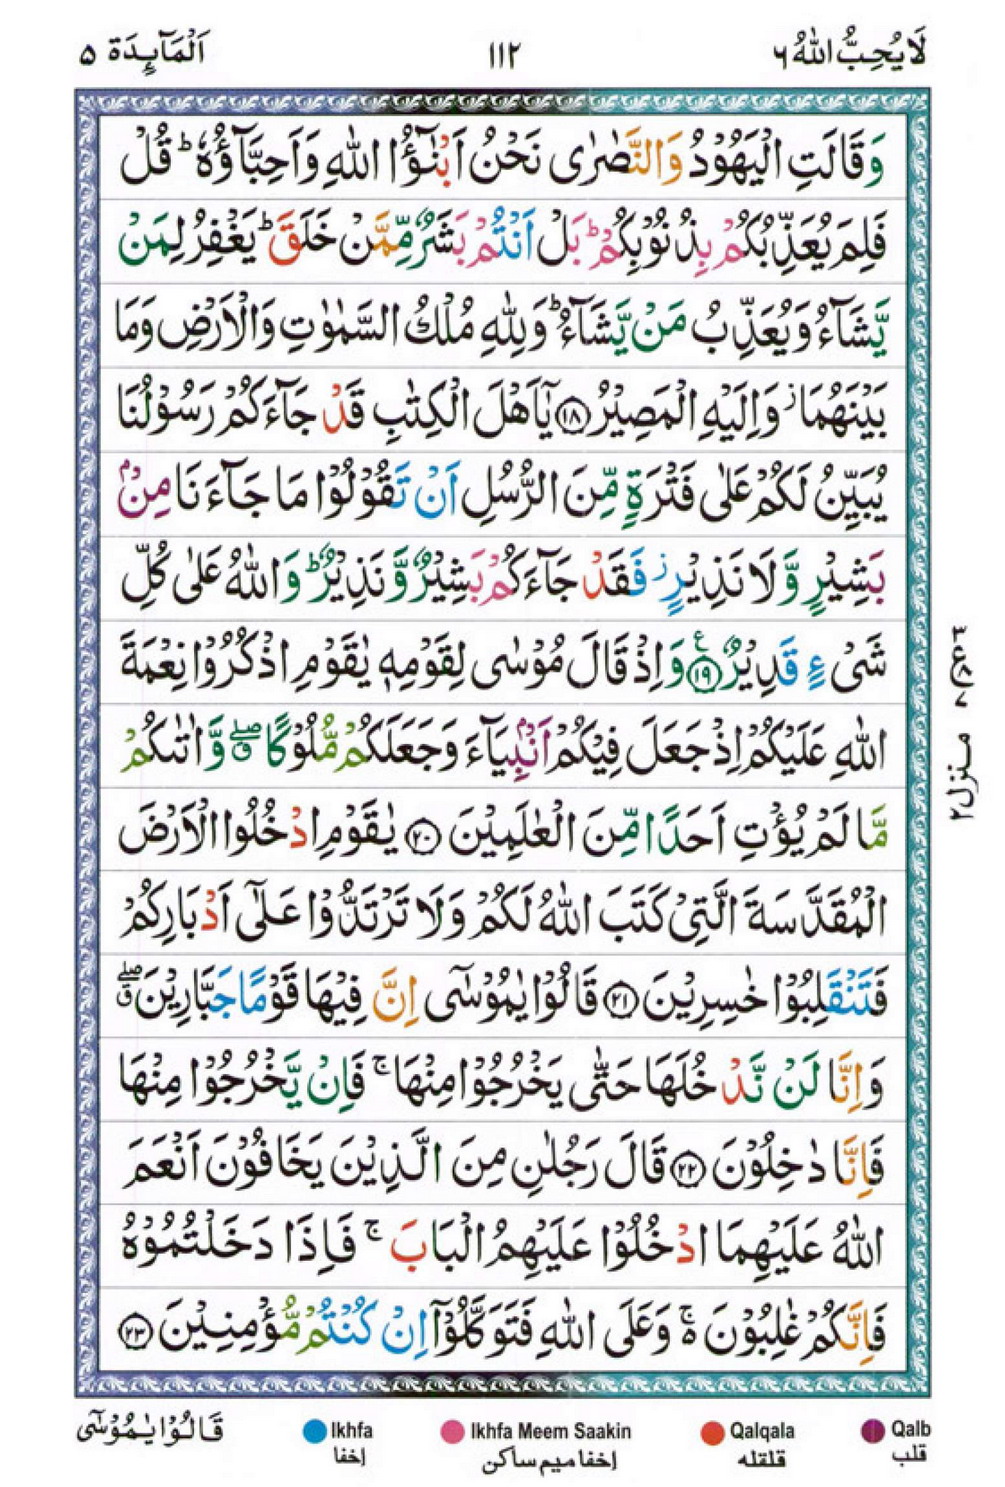 لَا يُحِبُّ اللهُ ٦
١١٢
اَلْمَآىِٕدَة ٥
وَقَالَتِ الْيَهُوْدُ وَالنَّصٰرٰى نَحْنُ اَبْنٰٓؤُا اللهِ وَاَحِبَّآؤُهٗ ؕ قُلْ
فَلِمَ يُعَذِّبُكُمْ بِذُنُوْبِكُمْ ؕ بَلْ اَنْتُمْ بَشَرٌ مِّمَّنْ خَلَقَ ؕ يَغْفِرُ لِمَنْ
يَّشَآءُ وَيُعَذِّبُ مَنْ يَّشَآءُ ؕ وَلِلّٰهِ مُلْكُ السَّمٰوٰتِ وَالْاَرْضِ وَمَا
بَيْنَهُمَا ؗ وَاِلَيْهِ الْمَصِيْرُ ۝۱۸ يٰۤاَهْلَ الْكِتٰبِ قَدْ جَآءَكُمْ رَسُوْلُنَا
يُبَيِّنُ لَكُمْ عَلٰى فَتْرَةٍ مِّنَ الرُّسُلِ اَنْ تَقُوْلُوْا مَا جَآءَنَا مِنْۢ
بَشِيْرٍ وَّلَا نَذِيْرٍ ؗ فَقَدْ جَآءَكُمْ بَشِيْرٌ وَّنَذِيْرٌ ؕ وَاللهُ عَلٰى كُلِّ
شَىْءٍ قَدِيْرٌ ۝۱۹ ع وَاِذْ قَالَ مُوْسٰى لِقَوْمِهٖ يٰقَوْمِ اذْكُرُوْا نِعْمَةَ
اللهِ عَلَيْكُمْ اِذْ جَعَلَ فِيْكُمْ اَنْۢبِيَآءَ وَجَعَلَكُمْ مُّلُوْكًا ۖۗ وَّاٰتٰىكُمْ
مَّا لَمْ يُؤْتِ اَحَدًا مِّنَ الْعٰلَمِيْنَ ۝۲۰ يٰقَوْمِ ادْخُلُوا الْاَرْضَ
الْمُقَدَّسَةَ الَّتِىْ كَتَبَ اللهُ لَكُمْ وَلَا تَرْتَدُّوْا عَلٰۤى اَدْبَارِكُمْ
فَتَنْقَلِبُوْا خٰسِرِيْنَ ۝۲۱ قَالُوْا يٰمُوْسٰٓى اِنَّ فِيْهَا قَوْمًا جَبَّارِيْنَ ۖۗ
وَاِنَّا لَنْ نَّدْخُلَهَا حَتّٰى يَخْرُجُوْا مِنْهَا ۚ فَاِنْ يَّخْرُجُوْا مِنْهَا
فَاِنَّا دٰخِلُوْنَ ۝۲۲ قَالَ رَجُلٰنِ مِنَ الَّذِيْنَ يَخَافُوْنَ اَنْعَمَ
اللهُ عَلَيْهِمَا ادْخُلُوْا عَلَيْهِمُ الْبَابَ ۚ فَاِذَا دَخَلْتُمُوْهُ
فَاِنَّكُمْ غٰلِبُوْنَ ۚ۬ وَعَلَى اللهِ فَتَوَكَّلُوْۤا اِنْ كُنْتُمْ مُّؤْمِنِيْنَ ۝۲۳
منزل ٢
قَالُوْا يٰمُوْسٰٓى
Ikhfa
إخفا
Ikhfa Meem Saakin
إخفا ميم ساكن
Qalqala
قلقله
Qalb
قلب